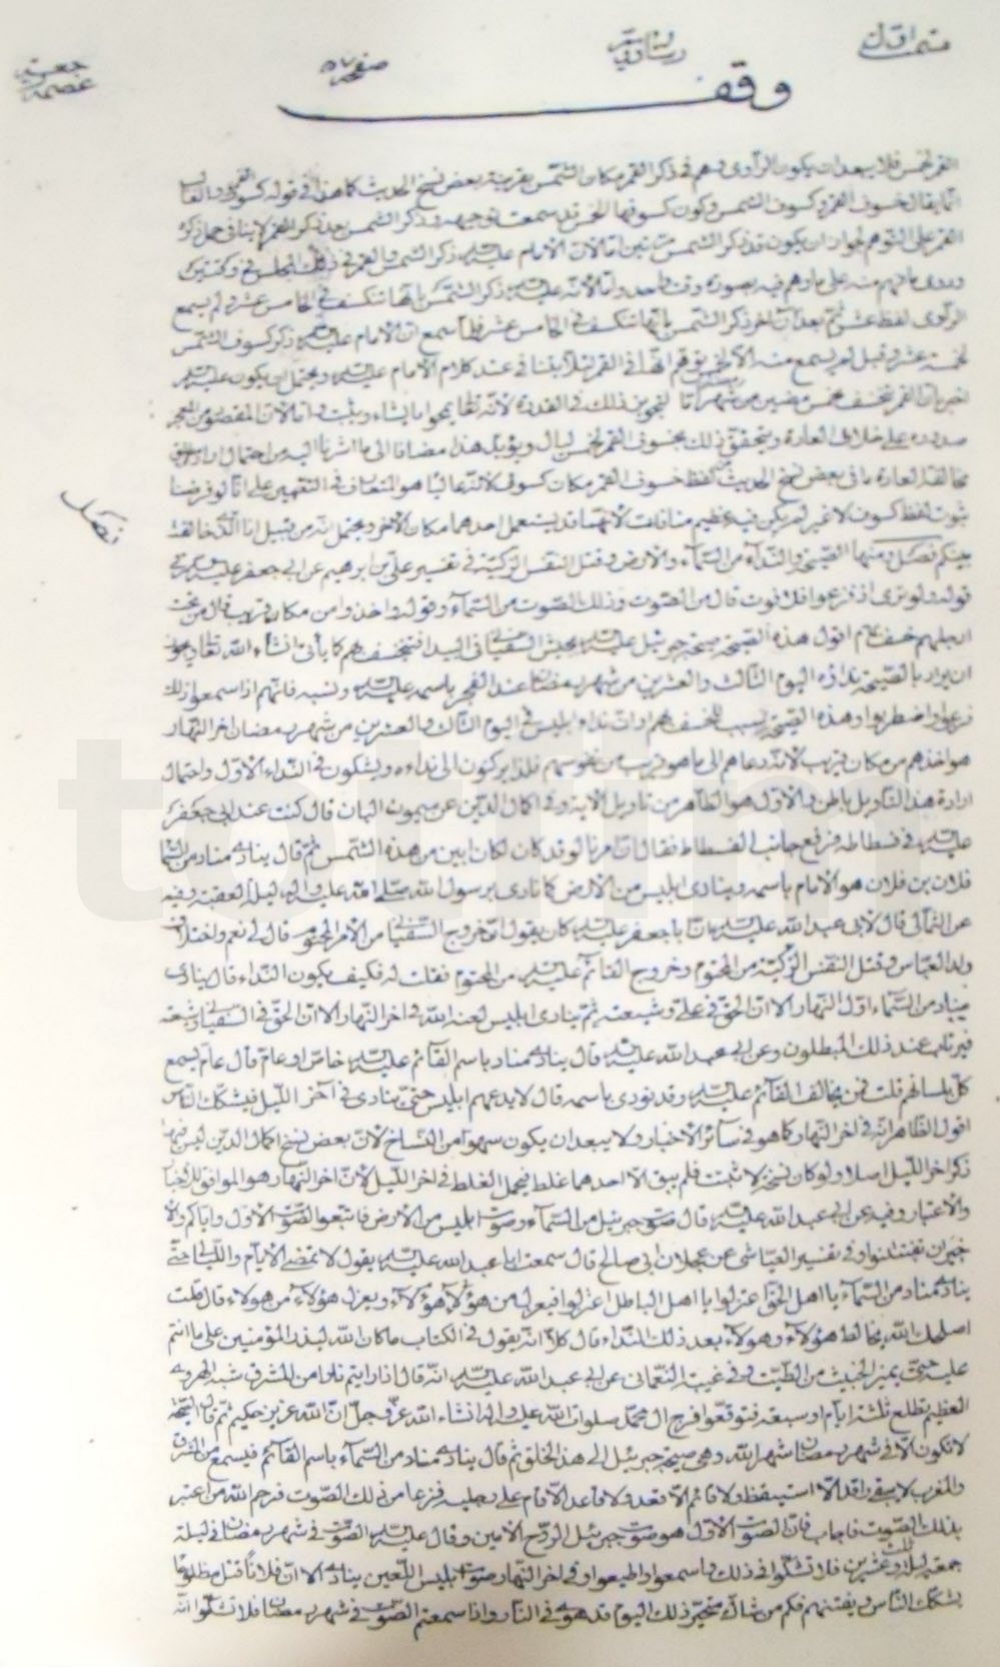 قسمت اول
صفحه ٥٧
وقف
القمر لخمس فلا يبعد ان يكون الراوى وهم فى ذكر القمر مكان الشمس بقرينة بعض نسخ الحديث كما هنا فى قوله كسوف القمر
انما يقال خسوف القمر وكسوف الشمس وكون كسوفها لخمس قد سمعت توجيهه وذكر الشمس بعد ذكر القمر لا ينافى حمل ذكر
القمر على التوهم لجواز ان يكون قد ذكر الشمس مرتين اما لان الامام عليه السلام ذكر الشمس والقمر فى ذلك المجلس فى وقتين
وروى ما فهم منه على ما وهم فيه بصورة وقت واحد واما لانه عليه السلام ذكر الشمس انها تنكسف فى الخامس عشر ولم يسمع
الراوى لفظ عشر ثم بعد ان اخر ذكر الشمس بانها تنكسف فى الخامس عشر فلما سمع ان الامام عليه السلام ذكر كسوف الشمس
لخمسة عشر وقبل لم يسمع منه الا لخمس توهم انها فى القمر لئلا يتنافى عنده كلام الامام عليه السلام ويحتمل ان يكون عليه السلام
اخبر بان القمر ينخسف لخمس مضين من شهر اما لتجويز ذلك فى القدرة لانه تعالى يمحو ما يشاء ويثبت واما لان المقصود من المعجز
صدوره على خلاف العادة ويتحقق ذلك بخسوف القمر لخمس ليال ويؤيد هذا مضافا الى ما اشرنا اليه من احتمال ارادة
مخالفة العادة ما فى بعض نسخ الحديث من لفظ خسوف القمر مكان كسوف لانه غالبا هو المتعارف فى التعبير على انا لو فرضنا
ثبوت لفظ كسوف لا غير لم يكن فيه عظيم منافات لانهما قد يستعمل احدهما مكان الاخر ويحتمل انه من قبيل انا الذى خالفت
فصل
بينكم فصل ومنها الصيحة والنداء من السماء والارض وقتل النفس الزكية فى تفسير على بن ابرهيم عن ابى جعفر عليه السلام فى
قوله ولو ترى اذ فزعوا فلا فوت قال من الصوت وذلك الصوت من السماء وقوله واخذوا من مكان قريب قال من تحت
ارجلهم خسف بهم اقول هذه الصيحة صيحة جبرئيل عليه السلام بجيش السفيانى فى البيداء فتخسف بهم كما يأتى انشاء الله تعالى
ان يراد بالصيحة نداؤه اليوم الثالث والعشرين من شهر رمضان عند الفجر باسمه عليه السلام ونسبه فانهم اذا سمعوا ذلك
فزعوا واضطربوا وهذه الصيحة سبب للخسف بهم او ان نداء ابليس فى اليوم الثالث والعشرين من شهر رمضان اخر النهار
هو اخذهم من مكان قريب لانه دعاهم الى ما هو قريب من نفوسهم فلذا يركنون الى نداءه ويشكون فى النداء الاول واحتمال
ارادة هذا التاويل باطن والاول هو الظاهر من تاويل الاية وفى اكمال الدين عن ميمون البان قال كنت عند ابى جعفر
عليه السلام فى فسطاطه فرفع جانب الفسطاط فقال ان امرنا لو قد كان لكان ابين من هذه الشمس ثم قال ينادى مناد من السماء
فلان بن فلان هو الامام باسمه وينادى ابليس من الارض كما نادى برسول الله صلى الله عليه واله ليلة العقبة وفيه
عن الثمالى قال لابى عبد الله عليه السلام ان ابا جعفر عليه السلام كان يقول ان خروج السفيانى من الامر المحتوم قال لى نعم واختلاف
ولد العباس وقتل النفس الزكية من المحتوم وخروج القائم عليه السلام من المحتوم فقلت له فكيف يكون النداء قال ينادى
مناد من السماء اول النهار الا ان الحق فى على وشيعته ثم ينادى ابليس لعنه الله فى اخر النهار الا ان الحق فى السفيانى وشيعته
فيرتاب عند ذلك المبطلون وعن ابى عبد الله عليه السلام قال ينادى مناد باسم القائم عليه السلام خاص او عام قال عام يسمع
كل بلسانهم قلت فمن يخالف القائم عليه السلام وقد نودى باسمه قال لا يدعهم ابليس حتى ينادى فى آخر الليل فيشكك الناس
اقول الظاهر انه فى اخر النهار كما هو فى سائر الاخبار ولا يبعد ان يكون سهوا من النساخ لان بعض نسخ اكمال الدين ليس فيها
ذكر اخر الليل اصلا ولو كان نسخة لاثبت فلم يبق الا احدهما غلط فيحمل الغلط فى اخر الليل لان اخر النهار هو الموافق للاخبار
والاعتبار وفيه عن ابى عبد الله عليه السلام قال صوت جبرئيل من السماء وصوت ابليس من الارض فاتبعوا الصوت الاول واياكم والا
خير ان تفتتنوا به وفى تفسير العياشى عن عجلان ابى صالح قال سمعت ابا عبد الله عليه السلام يقول لا تمضى الايام والليالى حتى
ينادى مناد من السماء يا اهل الحق اعتزلوا يا اهل الباطل اعتزلوا فيعزل هؤلاء من هؤلاء ويعزل هؤلاء من هؤلاء قال قلت
اصلحك الله يخالط هؤلاء وهؤلاء بعد ذلك النداء قال كلا انه يقول فى الكتاب ما كان الله ليذر المؤمنين على ما انتم
عليه حتى يميز الخبيث من الطيب وفى غيبة النعمانى عن ابى عبد الله عليه السلام انه قال اذا رايتم نارا من المشرق شبه الهروى
العظيم تطلع ثلثة ايام او سبعة فتوقعوا فرج ال محمد صلوات الله عليه واله انشاء الله عز وجل ان الله عزيز حكيم ثم قال الصيحة
لا تكون الا فى شهر رمضان شهر الله وهى صيحة جبرئيل الى هذا الخلق ثم قال ينادى مناد من السماء باسم القائم فيسمع من المشرق
والمغرب لا يبقى راقد الا استيقظ ولا قائم الا قعد ولا قاعد الا قام على رجليه فزعا من ذلك الصوت فرحم الله من اعتبر
بذلك الصوت فاجاب فان الصوت الاول هو صوت جبرئيل الروح الامين وقال عليه السلام الصوت فى شهر رمضان فى ليلة
جمعة ليلة ثلث وعشرين فلا تشكوا فى ذلك واسمعوا واطيعوا وفى اخر النهار صوت ابليس اللعين ينادى الا ان فلانا قتل مظلوما
يشكك الناس ويفتنهم فكم من شاك متحير ذلك اليوم قد هوى فى النار واذا سمعتم الصوت فى شهر رمضان فلا تشكوا انه